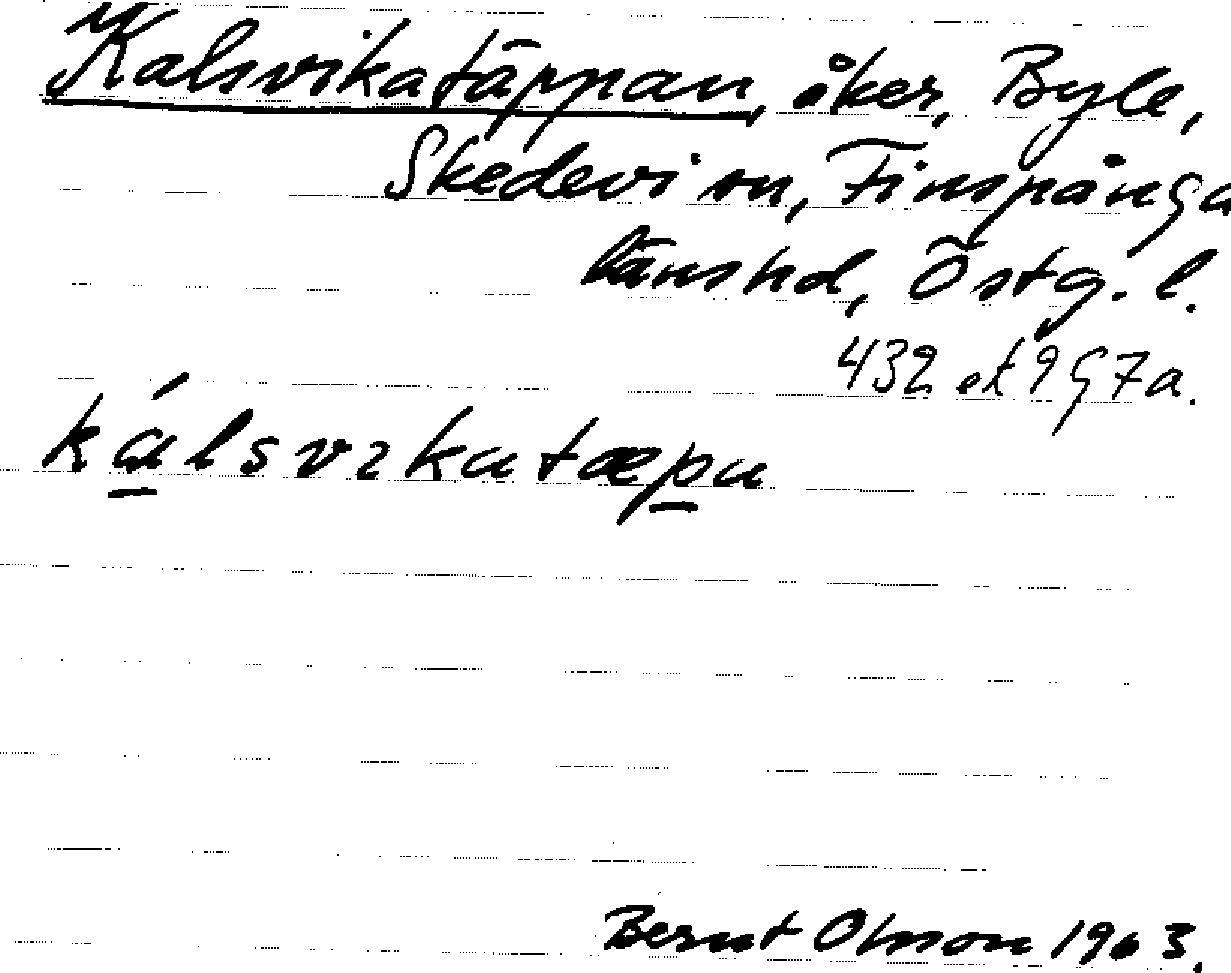 Kalsvikatäppan, åker, Byle,
Skedevi sn, Finspånga
länshd, Östg. l.
432 et 997a.
kálsvɩkatæpa
Bernt Olsson 1963.